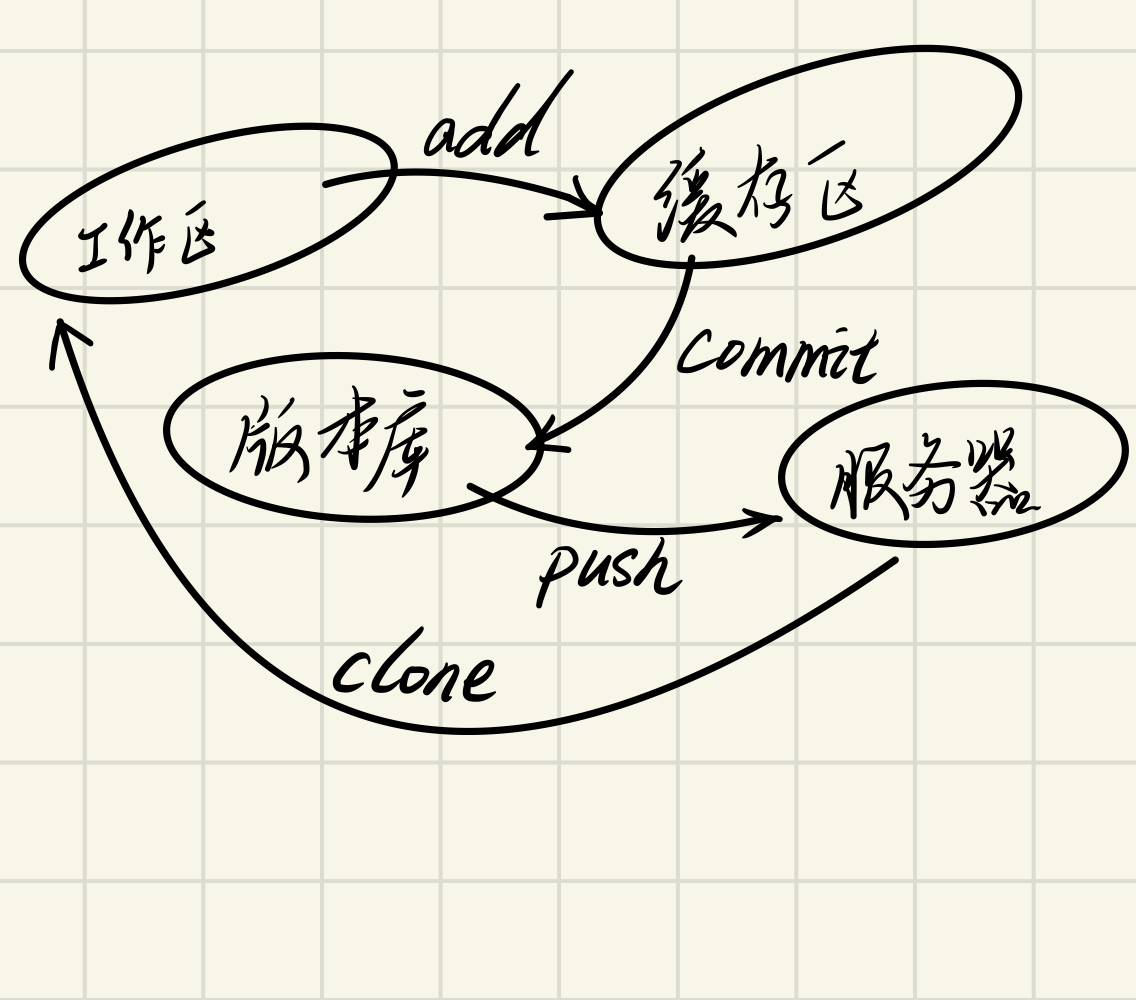 add
工作区
缓存区
commit
版本库
服务器
push
clone